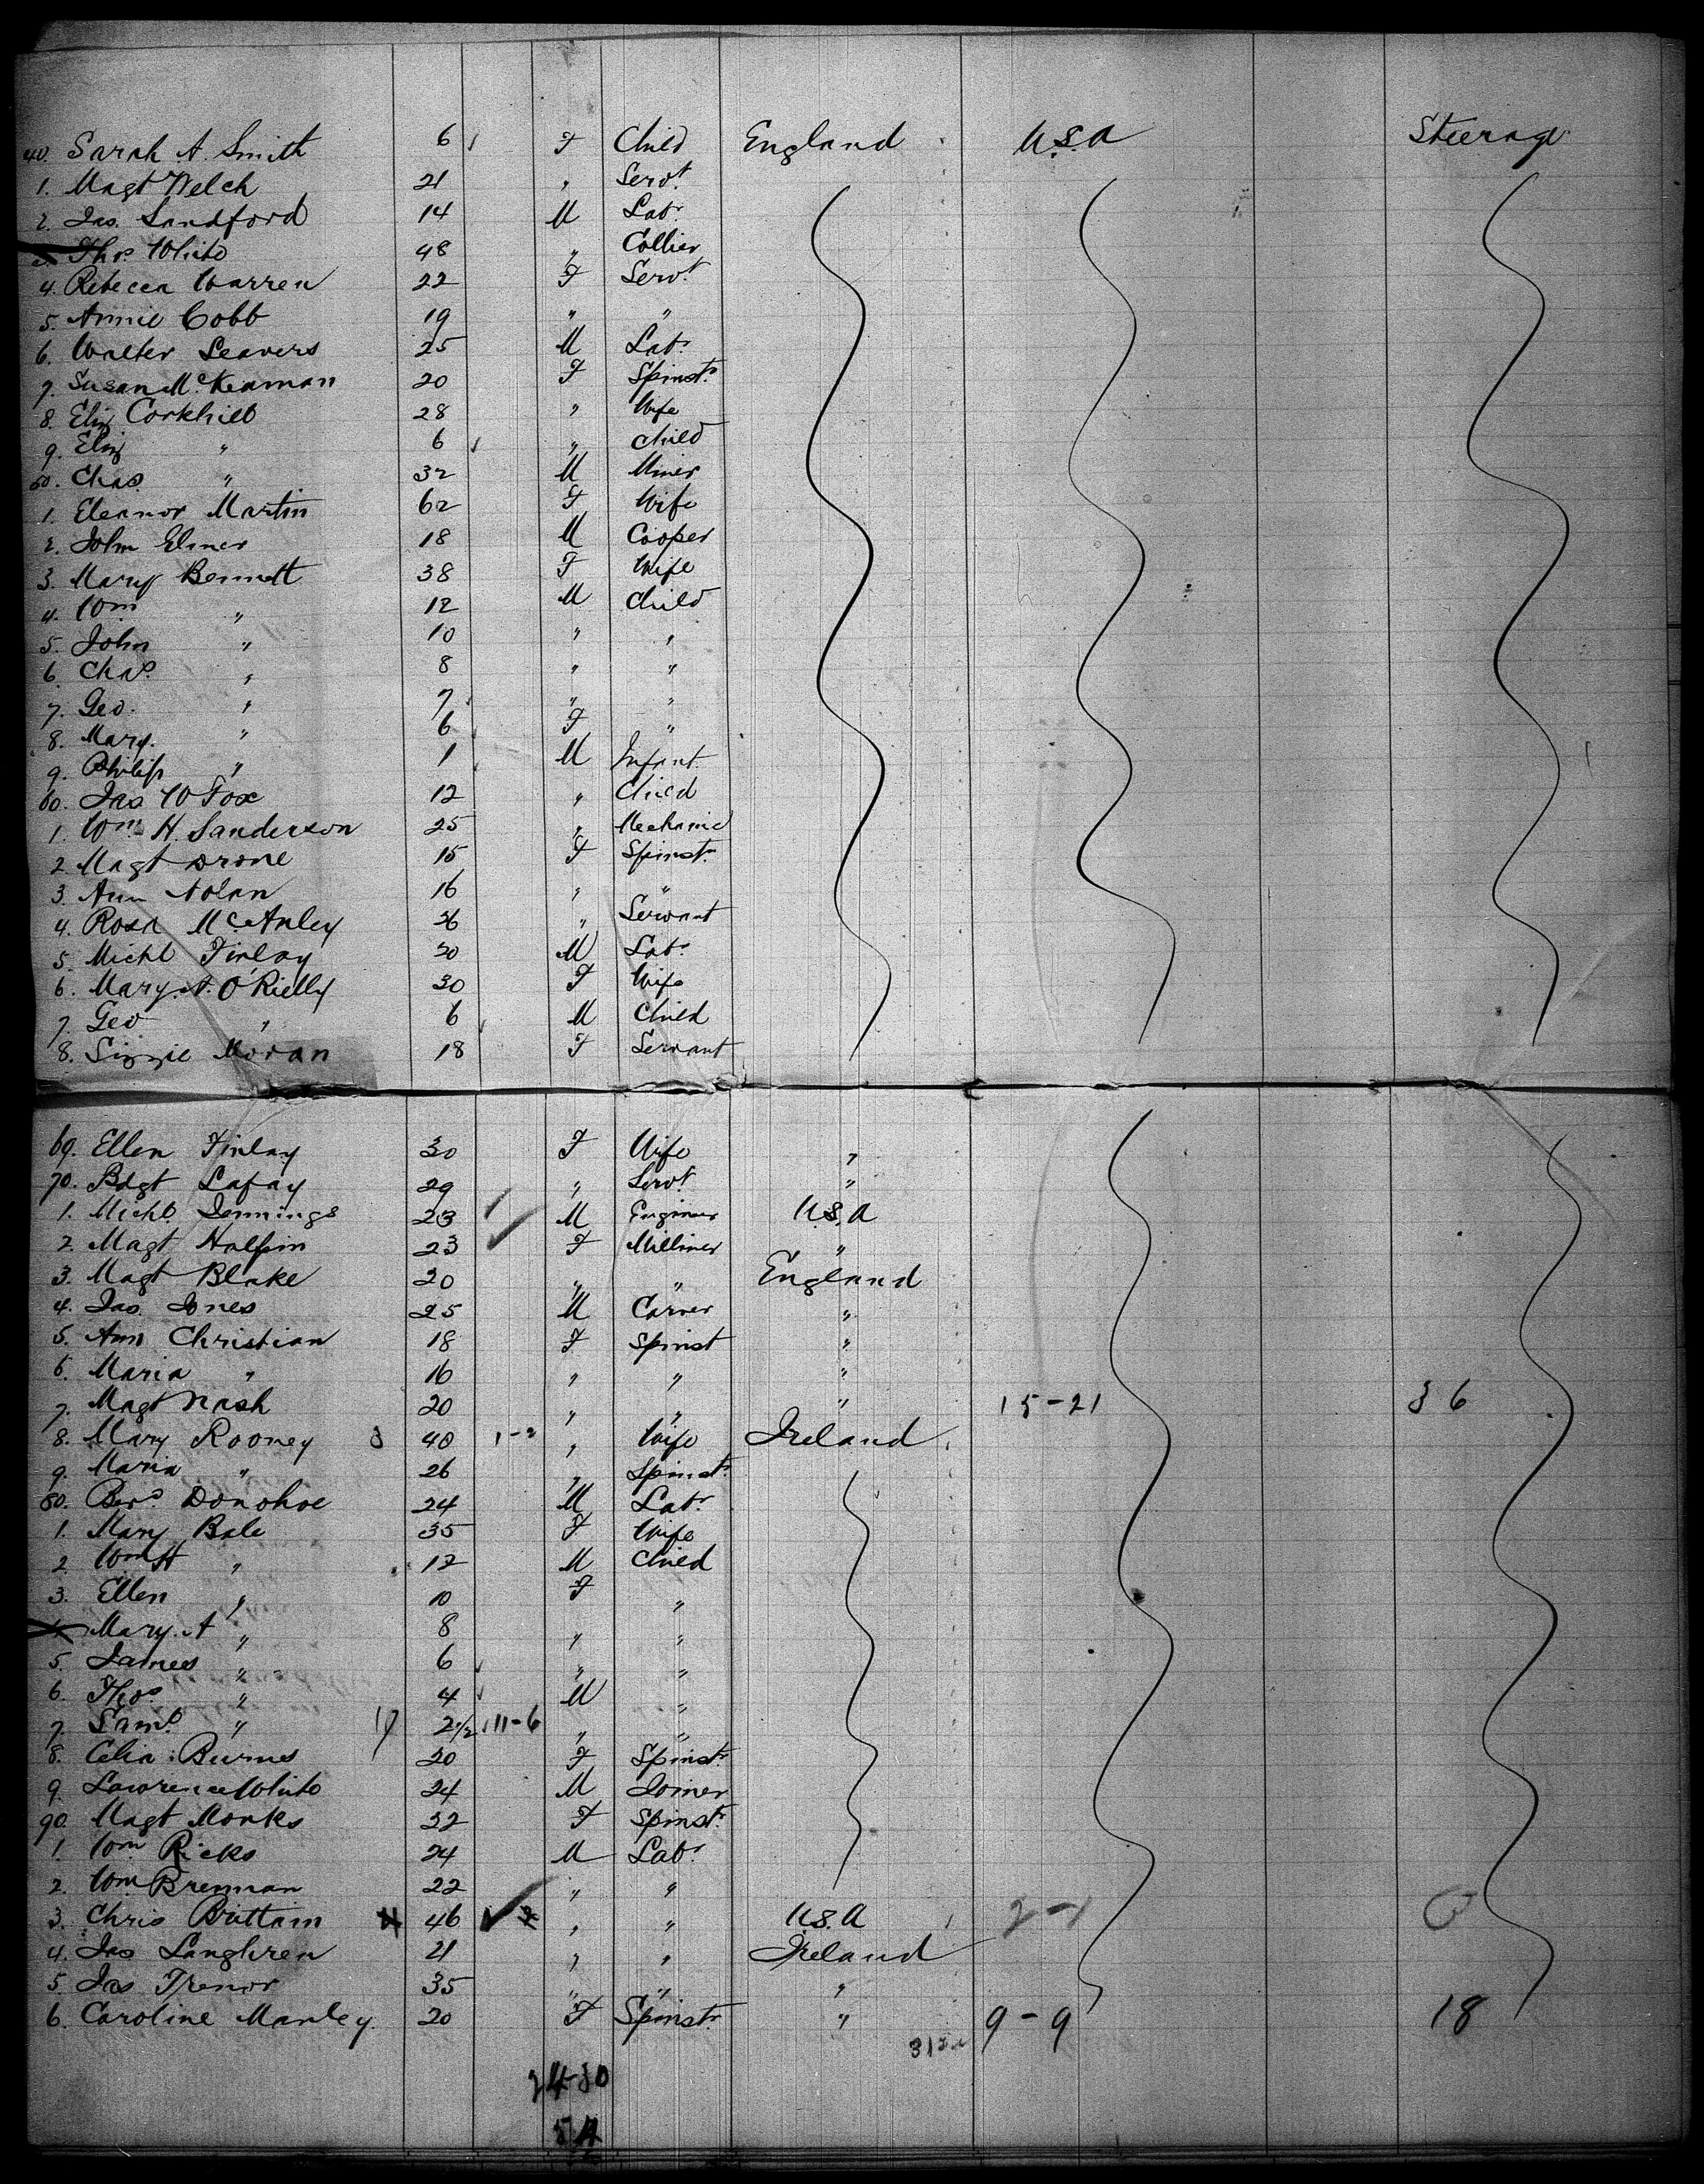 40. Sarah A. Smith 6 F Child England U.S.A Steerage
1. Magt Welch 21 " Servt.
2. Jas. Sandford 14 M Labr.
3. Thos White 48 " Collier
4. Rebecca Warren 22 F Servt.
5. Annie Cobb 19 " "
6. Walter Leavers 25 M Labr.
7. Susan McKearnan 20 F Spinstr.
8. Eliz Corkhill 28 " Wife
9. Eliz " 6 " Child
50. Chas. " 32 M Miner
1. Eleanor Martin 62 F Wife
2. John Elmer 18 M Cooper
3. Mary Bennett 38 F Wife
4. Wm " 12 M Child
5. John " 10 " "
6. Chas. " 8 " "
7. Geo. " 7 " "
8. Mary. " 6 F "
9. Philip " 1 M Infant.
60. Jas W Fox 12 " Child
1. Wm H. Sanderson 25 " Mechanic
2. Magt Drone 15 F Spinstr.
3. Ann Nolan 16 " "
4. Rosa McAnley 26 " Servant
5. Michl Finlay 20 M Labr.
6. Mary A. O'Rielly 30 F Wife
7. Geo " 6 M Child
8. Lizzie Moran 18 F Servant
69. Ellen Finlay 30 F Wife "
70. Bdgt Lafay 29 " Servt. "
1. Michl Jennings 23 M Engineer U.S.A
2. Magt Halpin 23 F Milliner "
3. Magt Blake 20 " " England
4. Jas. Jones 25 M Carver "
5. Ann Christian 18 F Spinst "
6. Maria " 16 " " "
7. Magt Nash 20 " " " 15-21 36
8. Mary Rooney 3 40 1-2 " Wife Ireland
9. Maria " 26 " Spinstr.
80. Berd. Donohoe 24 M Labr.
1. Mary Bale 35 F Wife
2. Wm H " 12 M Child
3. Ellen " 10 F "
4. Mary. A " 8 " "
5. James " 6 " "
6. Thos " 4 M "
7. Saml " 17 2 1/2 11-6 " "
8. Celia Burns 20 F Spinstr.
9. Lawrence White 24 M Joiner
90. Magt Monks 22 F Spinstr.
1. Wm Ricks 24 M Labr.
2. Wm Brennan 22 " "
3. Chris Brittain 46 " " U.S.A 2-1 3
4. Jas Langhren 21 " " Ireland
5. Jas Trenor 35 " " "
6. Caroline Manley 20 F Spinstr. " 9-9 18